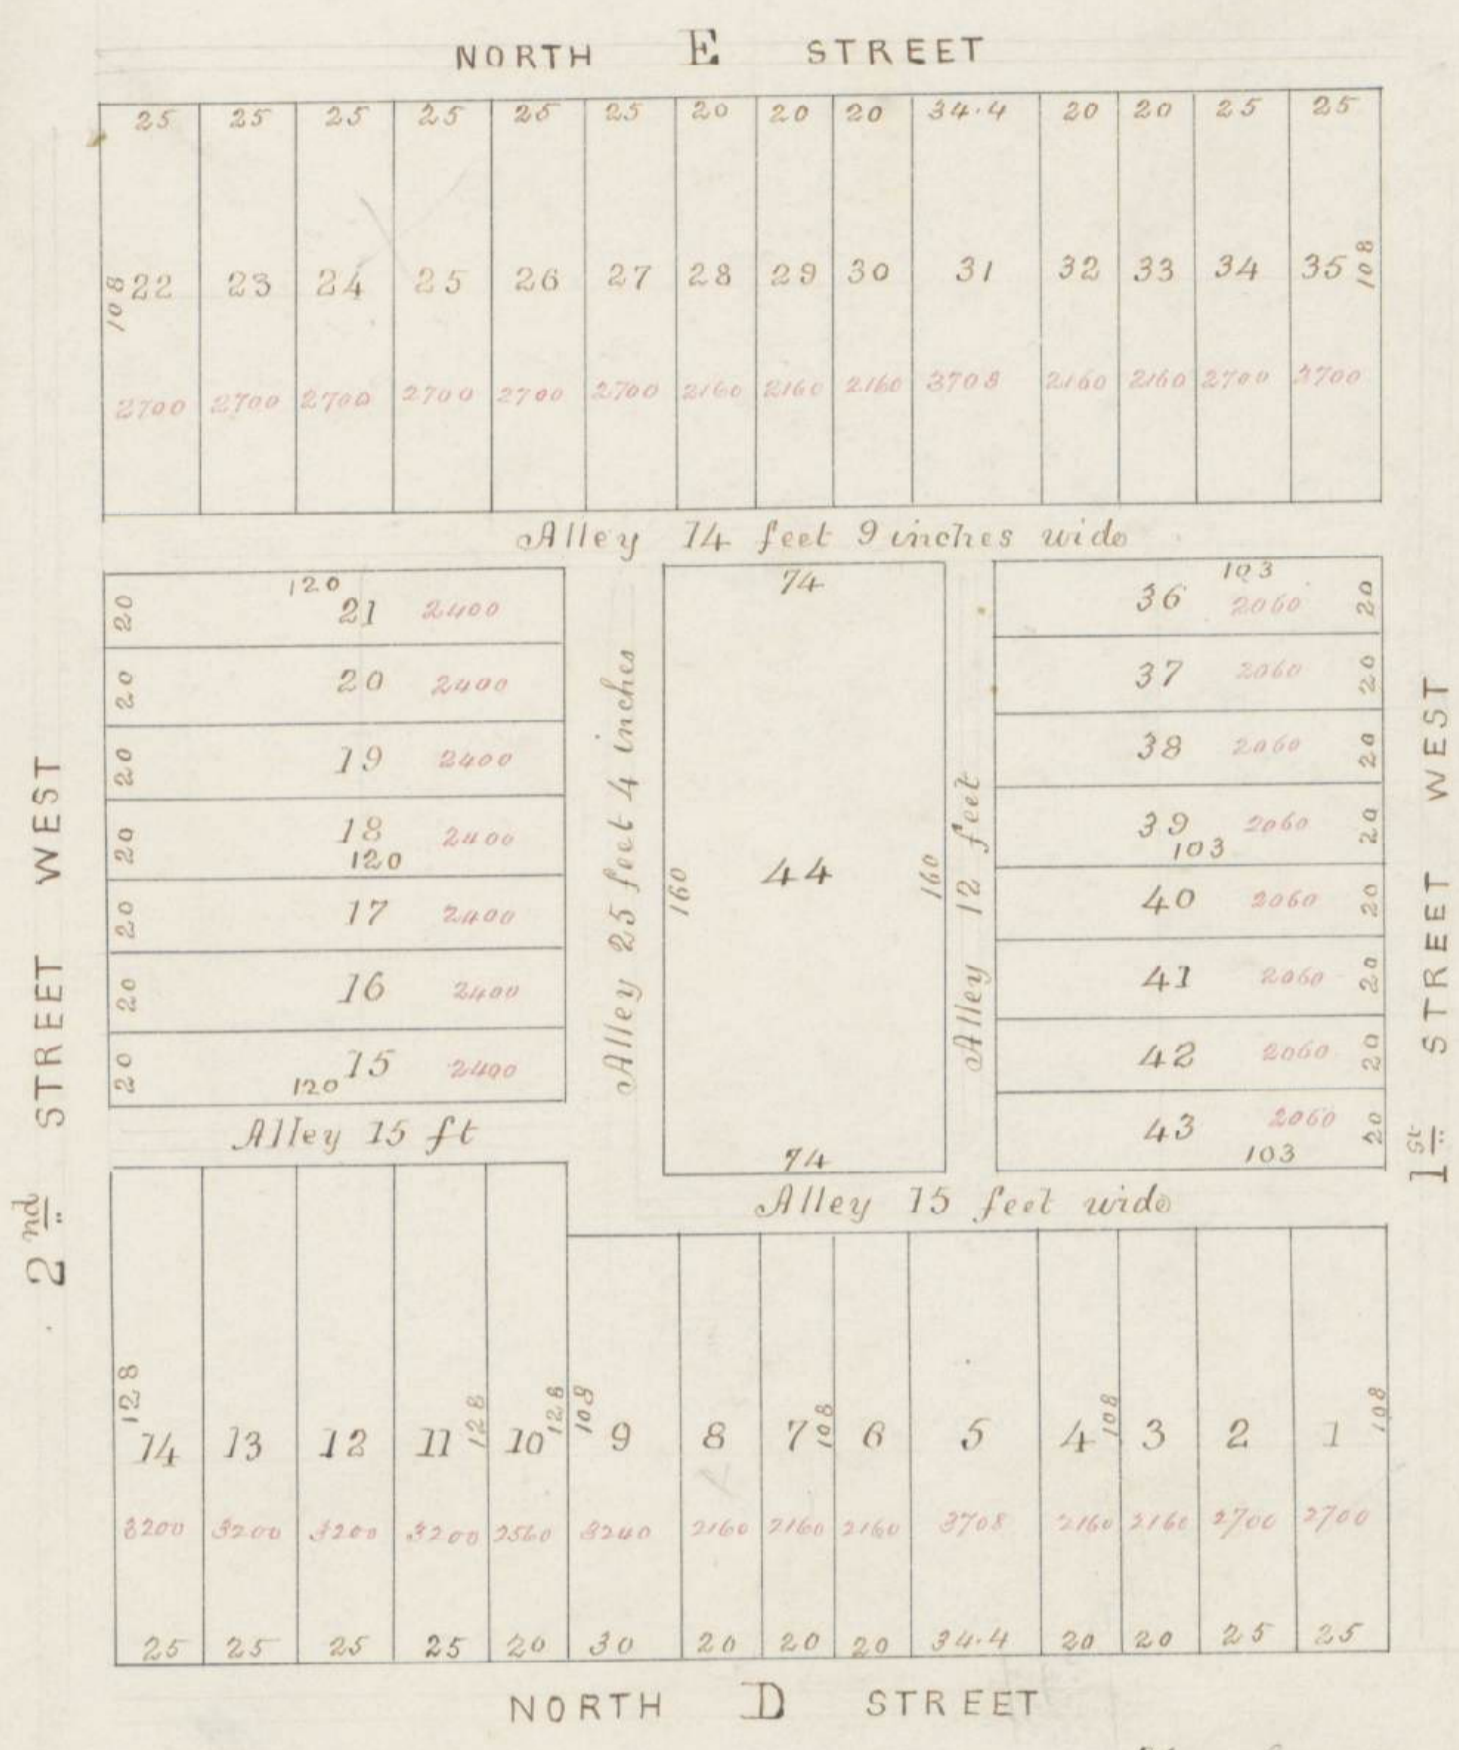 NORTH E STREET
25 25 25 25 25 25 20 20 20 34.4 20 20 25 25
108 22 23 24 25 26 27 28 29 30 31 32 33 34 35 108
2700 2700 2700 2700 2700 2700 2160 2160 2160 3708 2160 2160 2700 2700
Alley 14 feet 9 inches wide
120
20 21 2400
20 20 2400
20 19 2400
20 18 2400
120
20 17 2400
20 16 2400
20 15 2400
120
Alley 15 ft
Alley 25 feet 4 inches
74
160 44 160
74
Alley 12 feet
103
36 2060 20
37 2060 20
38 2060 20
39 2060 20
103
40 2060 20
41 2060 20
42 2060 20
43 2060 20
103
Alley 15 feet wide
2nd STREET WEST
1st STREET WEST
128 14 13 12 11 128 10 128 108 9 8 7 108 6 5 4 108 3 2 1 108
3200 3200 3200 3200 2560 3240 2160 2160 2160 3708 2160 2160 2700 2700
25 25 25 25 20 30 20 20 20 34.4 20 20 25 25
NORTH D STREET